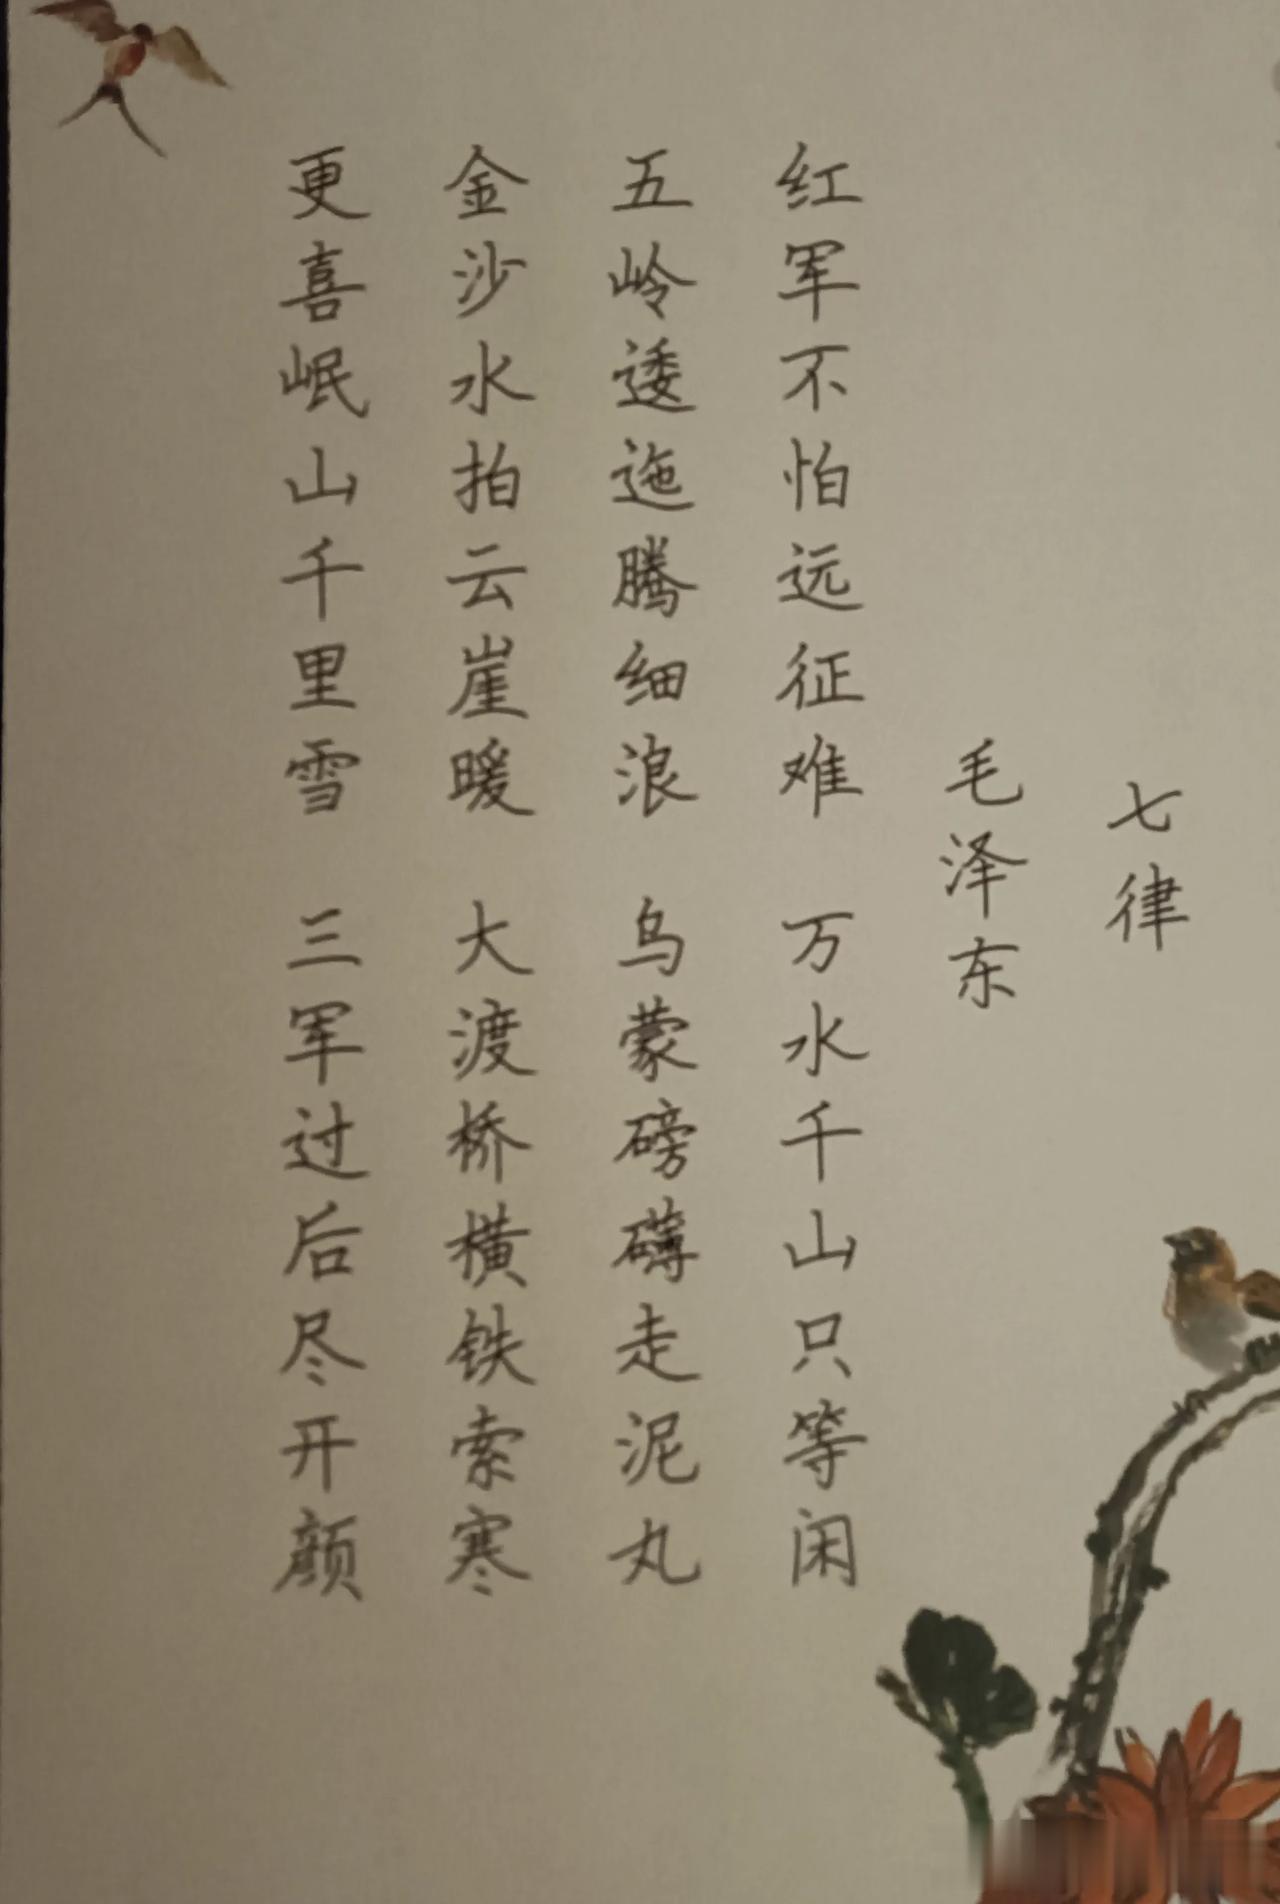 七律
毛泽东
红军不怕远征难 万水千山只等闲
五岭逶迤腾细浪 乌蒙磅礴走泥丸
金沙水拍云崖暖 大渡桥横铁索寒
更喜岷山千里雪 三军过后尽开颜